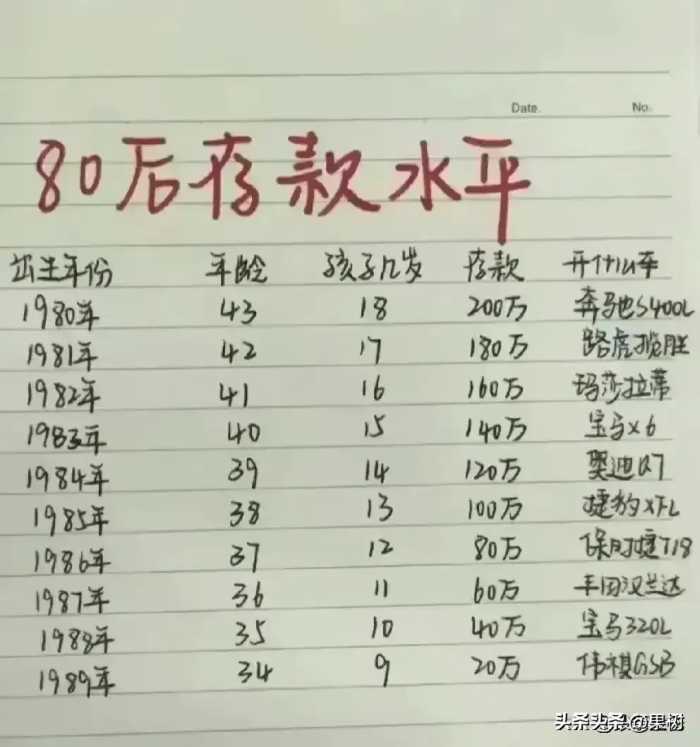 Date. No.
80后存款水平
出生年份 年龄 孩子几岁 存款 开什么车
1980年 43 18 200万 奔驰S400L
1981年 42 17 180万 路虎揽胜
1982年 41 16 160万 玛莎拉蒂
1983年 40 15 140万 宝马X6
1984年 39 14 120万 奥迪Q7
1985年 38 13 100万 捷豹XFL
1986年 37 12 80万 保时捷718
1987年 36 11 60万 丰田汉兰达
1988年 35 10 40万 宝马320L
1989年 34 9 20万 伟祺GS8
头条头条@果树